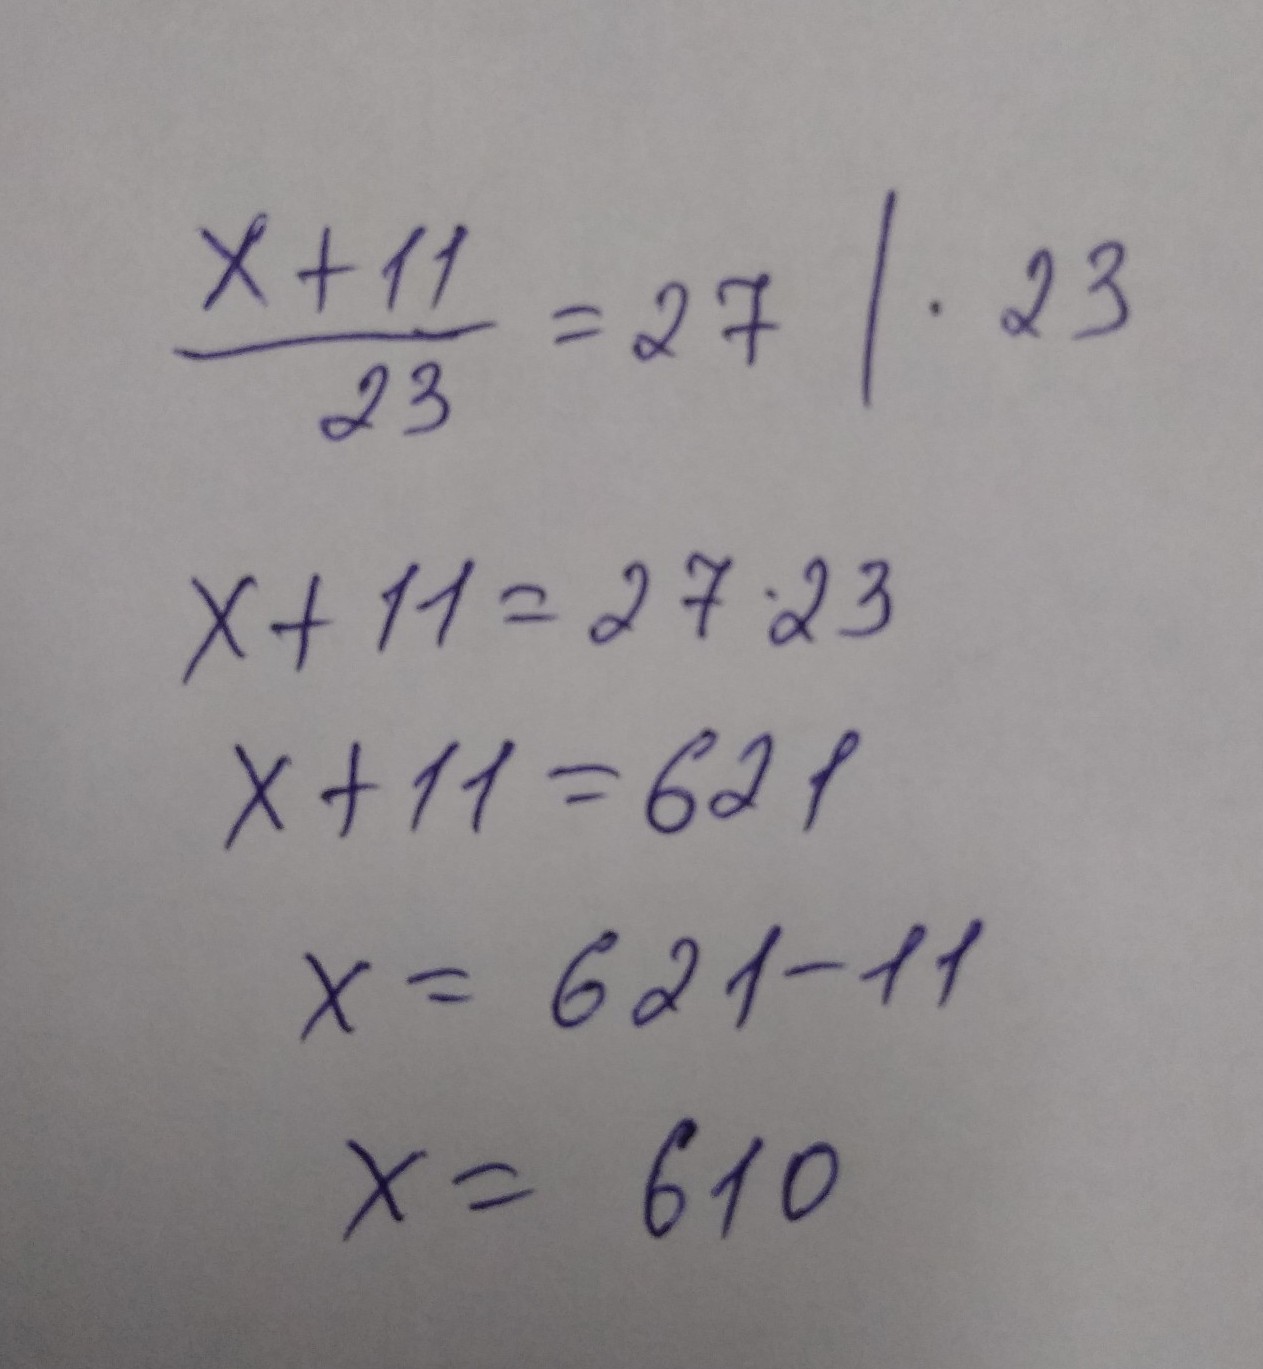 x+11/23 = 27 | · 23
x+11=27·23
x+11=621
x= 621-11
x= 610